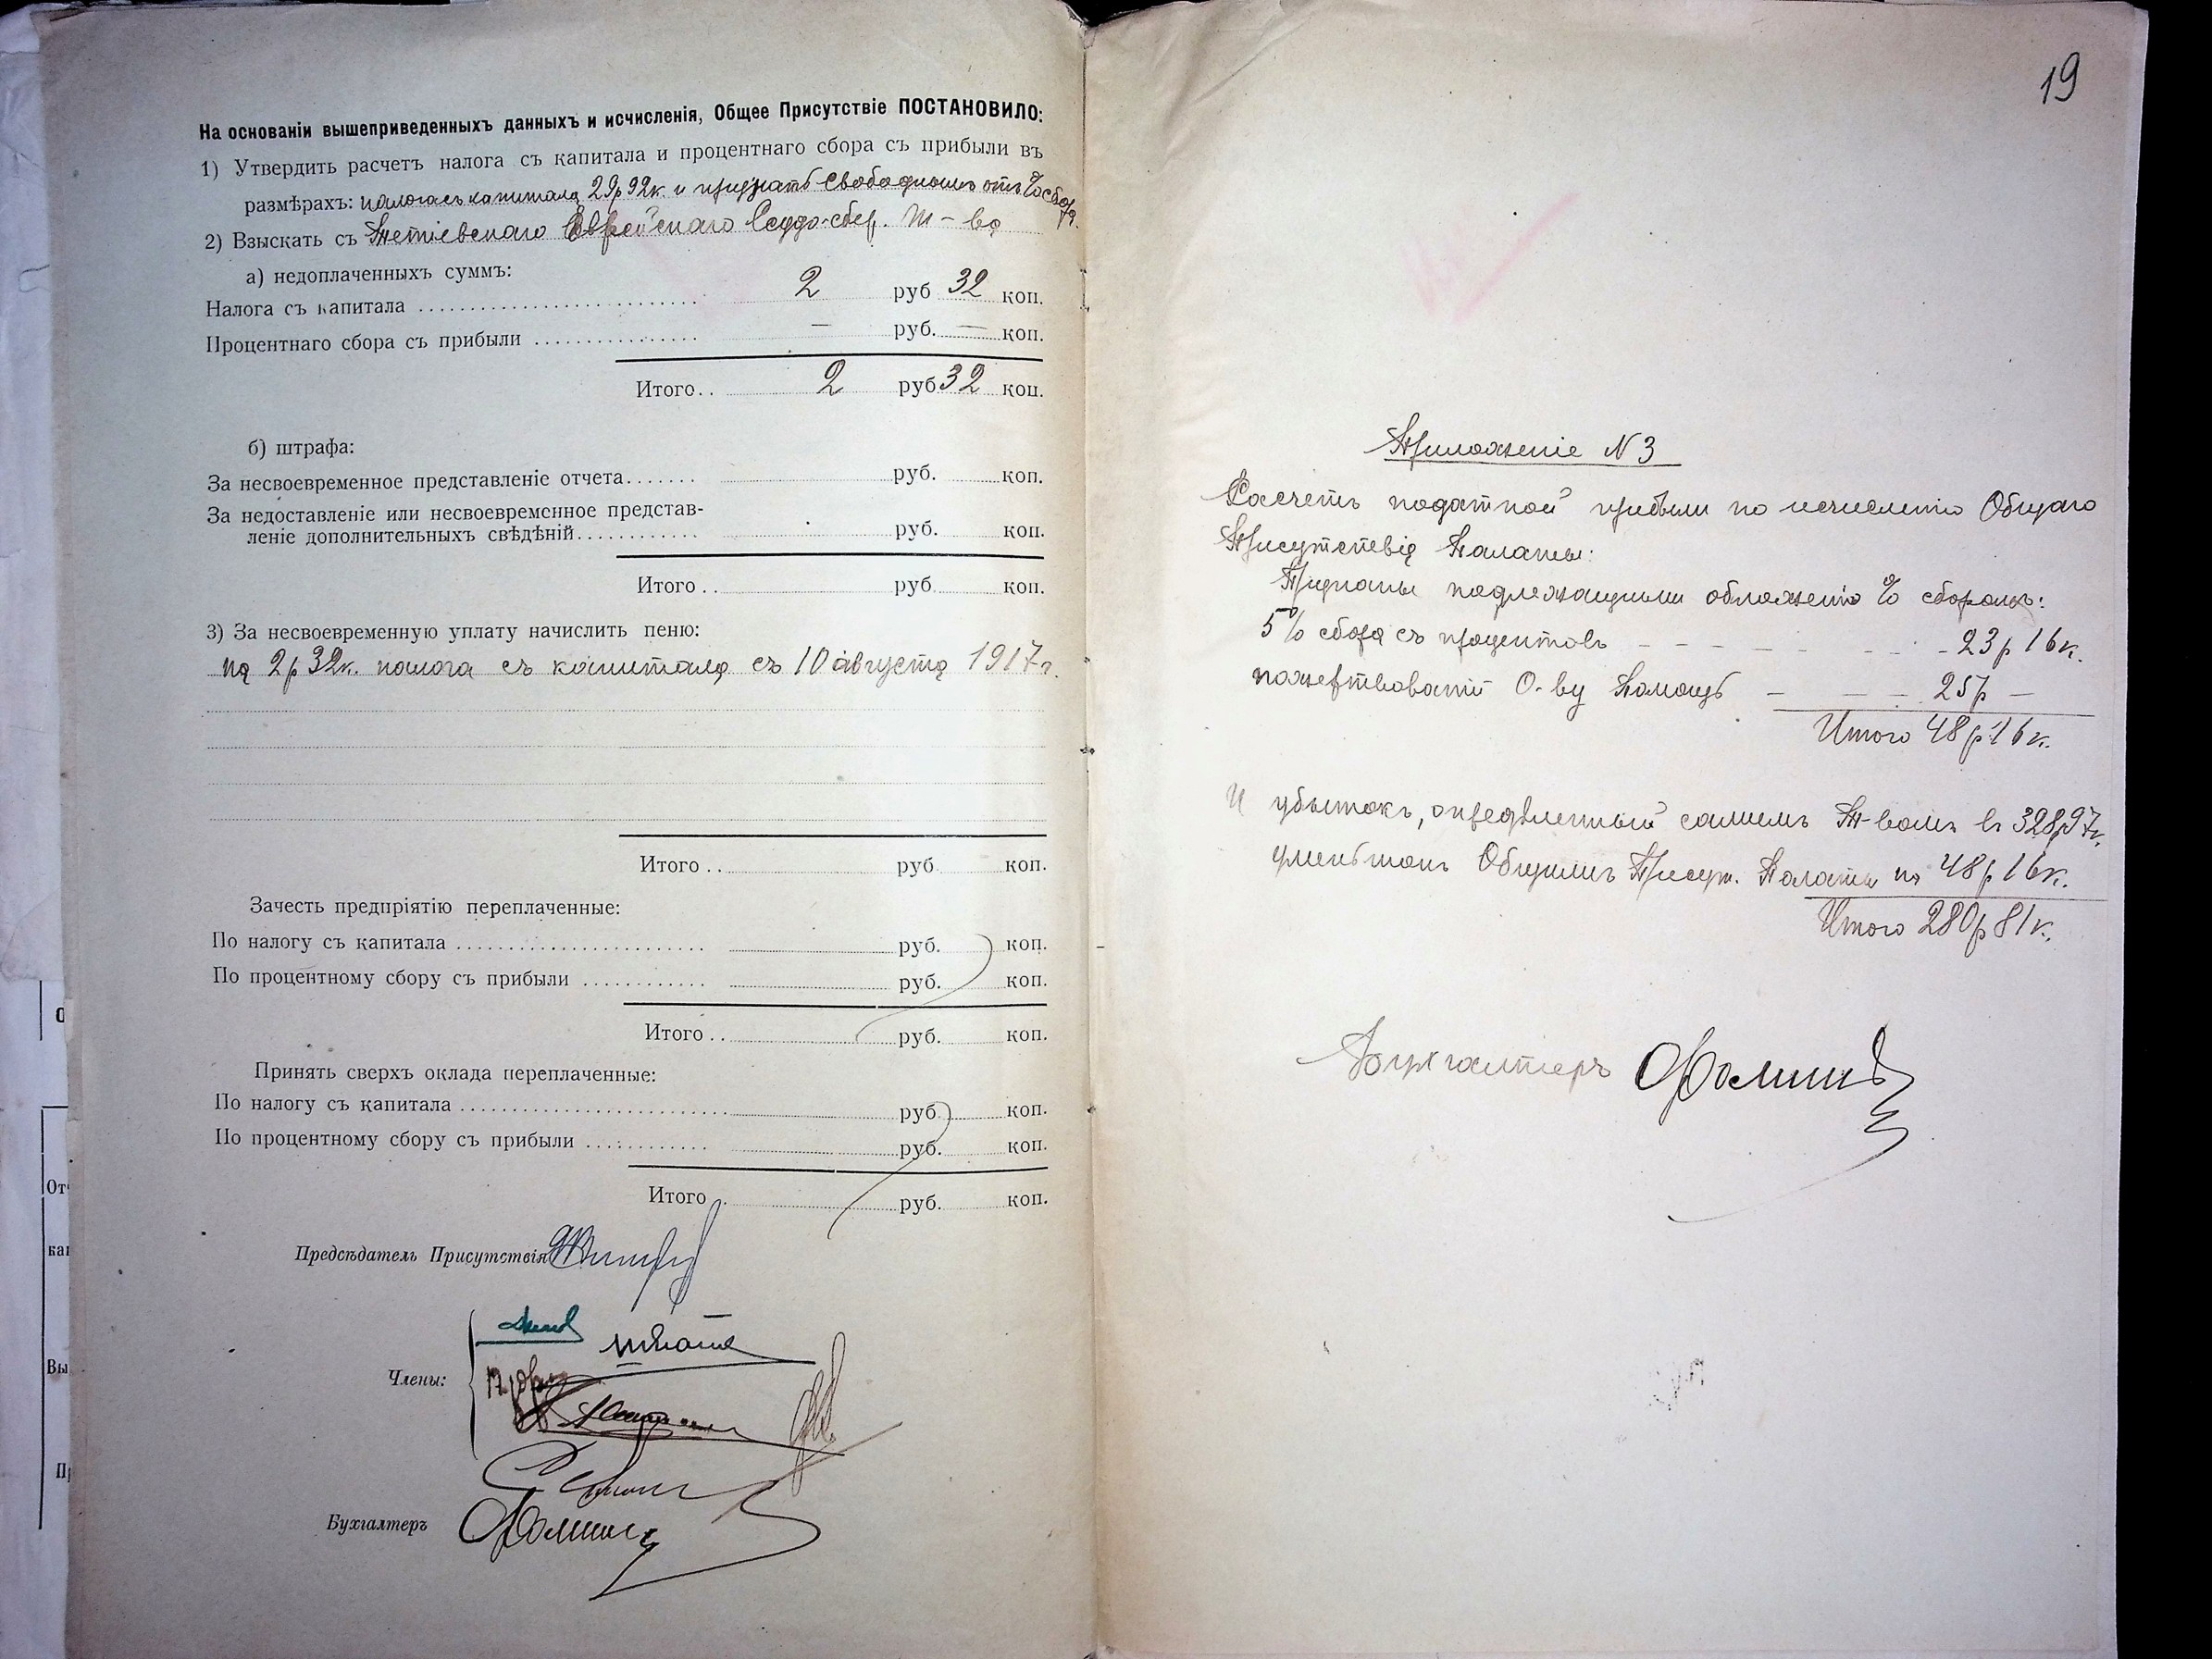 На основаніи вышеприведенныхъ данныхъ и исчисленія, Общее Присутствіе ПОСТАНОВИЛО:
1) Утвердить расчетъ налога съ капитала и процентнаго сбора съ прибыли въ
размѣрахъ: налога съ капитала 29р 92к. и признать свободнымъ отъ % сбора.
2) Взыскать съ Тетіевскаго Еврейскаго Ссудо-сбер. Т-ва
а) недоплаченныхъ суммъ:
Налога съ капитала 2 руб 32 коп.
Процентнаго сбора съ прибыли — руб. — коп.
Итого.. 2 руб 32 коп.
б) штрафа:
За несвоевременное представленіе отчета....... руб. коп.
За недоставленіе или несвоевременное представ-
леніе дополнительныхъ свѣдѣній............ руб. коп.
Итого.. руб. коп.
3) За несвоевременную уплату начислить пеню:
на 2р 32к. налога съ капитала съ 10 августа 1917г.
Итого.. руб. коп.
Зачесть предпріятію переплаченные:
По налогу съ капитала руб. коп.
По процентному сбору съ прибыли руб. коп.
Итого.. руб. коп.
Принять сверхъ оклада переплаченные:
По налогу съ капитала руб. коп.
По процентному сбору съ прибыли руб. коп.
Итого.. руб. коп.
Предсѣдатель Присутствія
Члены:
Бухгалтеръ
19
Приложеніе N 3
Расчетъ податной прибыли по исчисленію Общаго
Присутствія Палаты:
Признаны подлежащими обложенію % сборомъ:
5% сбора съ процентовъ - - - - - - - - 23р 16к.
пожертвованій О-ву Помощь — — — 25р —
Итого 48р 16к.
И убытокъ, опредѣленный самимъ Т-вомъ въ 328р97к.
уменьшонъ Общимъ Присут. Палаты на 48р 16к.
Итого 280р 81к.
Бухгалтеръ